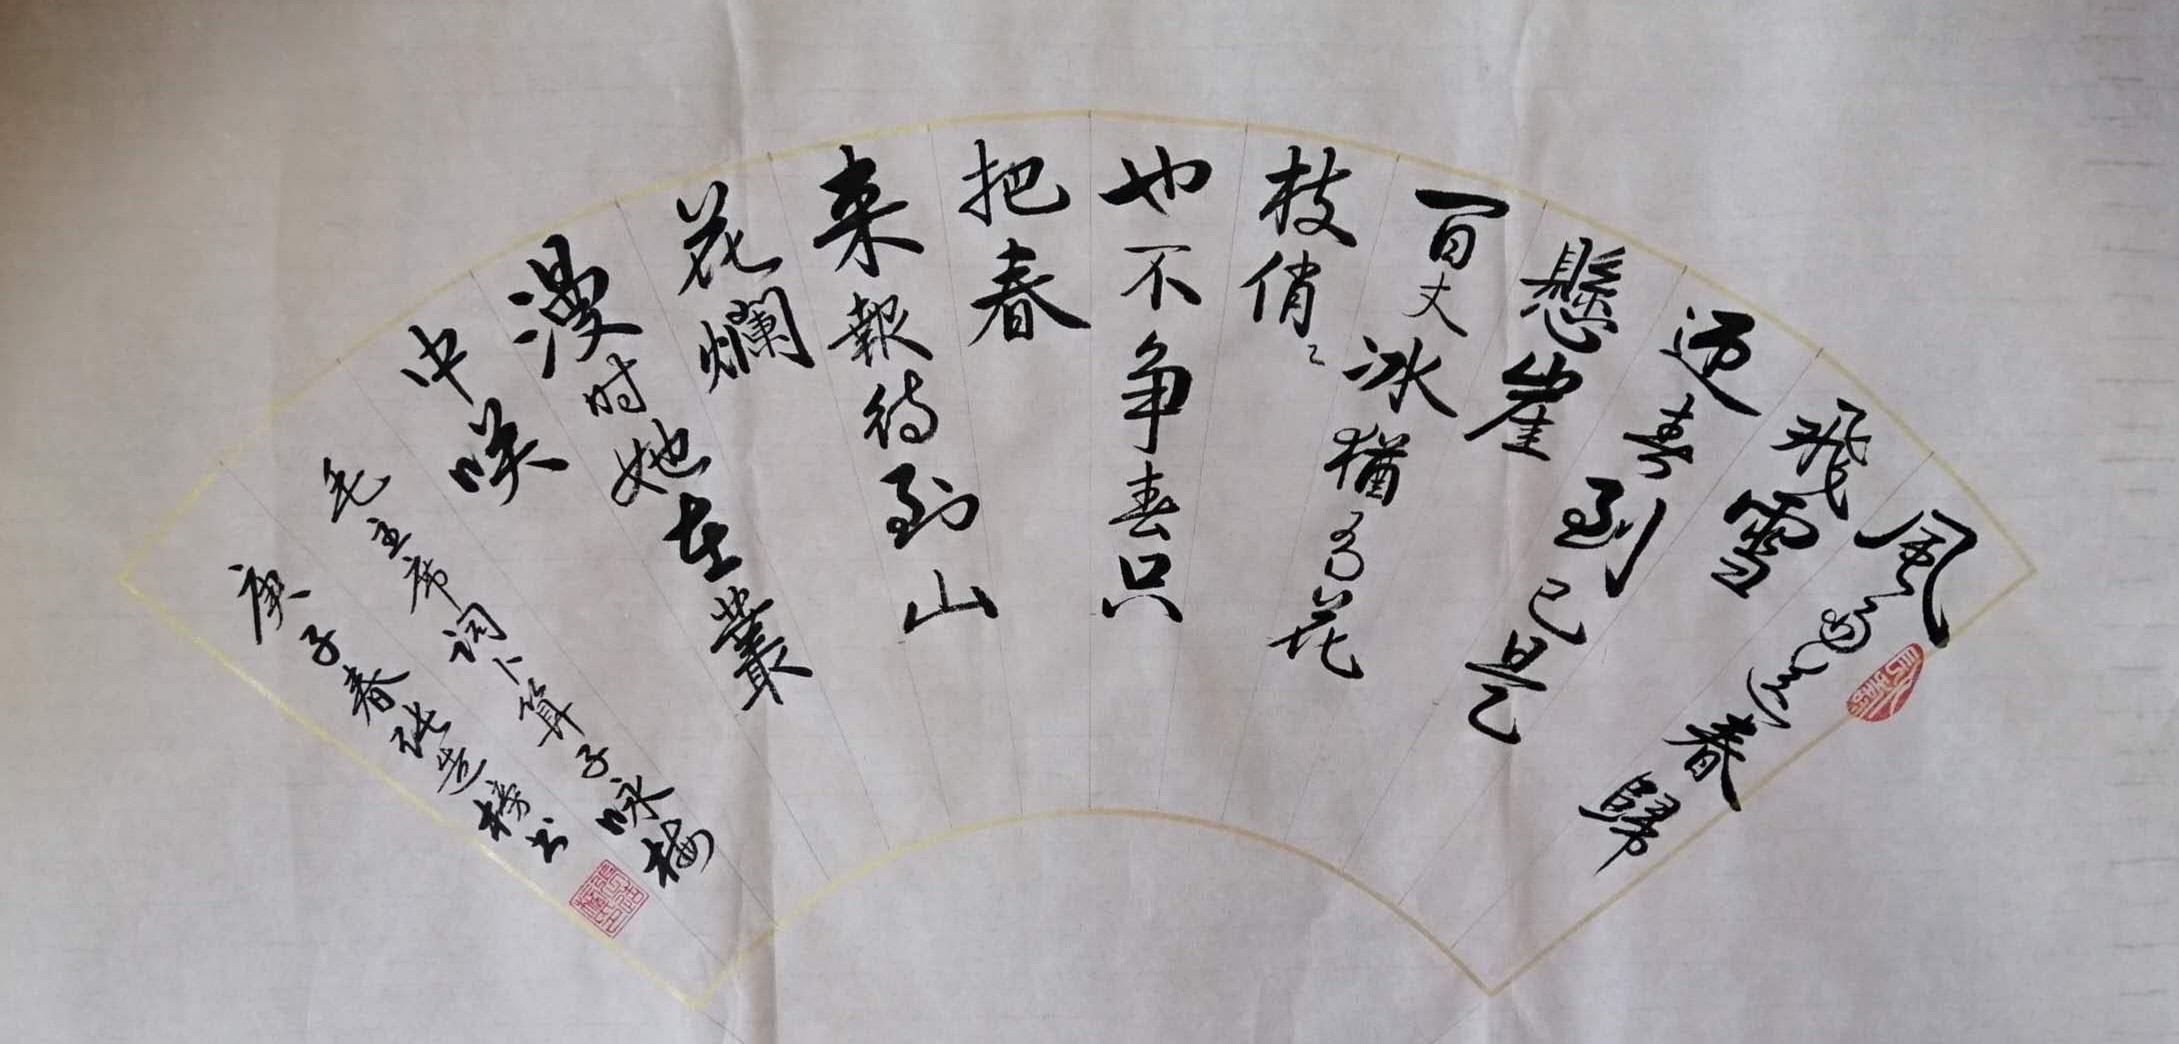 風雨送春歸
飛雪
迎春到已是
懸崖
百丈冰猶有花
枝俏〻
也不争春只
把春
来報待到山
花爛
漫时她在叢
中咲
毛主席词卜算子咏梅
庚子春张书